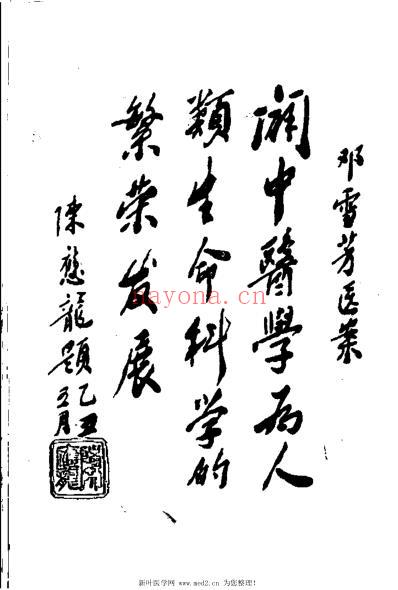 邓雪芳医案
中醫學为人
類生命科学的
繁荣发展
陳龍題
乙丑
五月
nayona.cn
新叶医学网 www.med2.cn 为您整理!